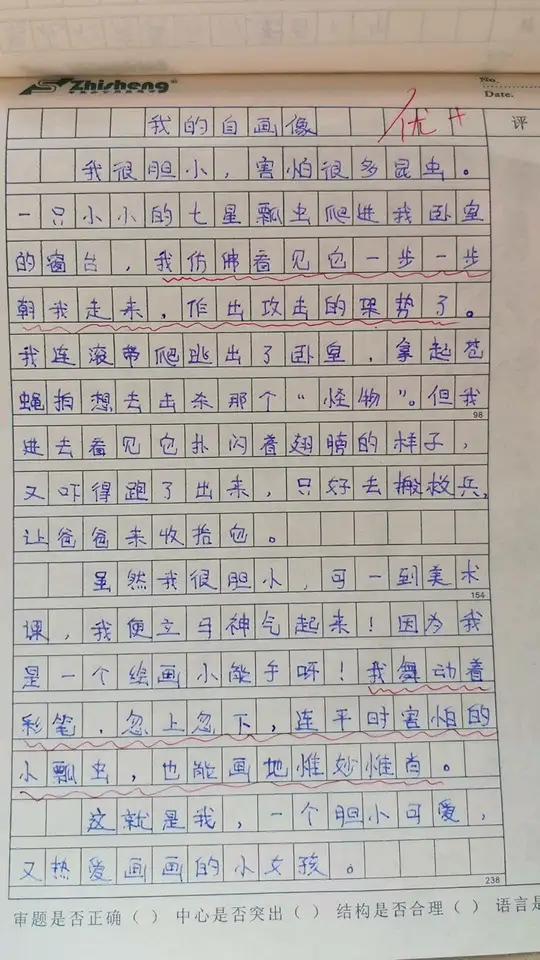 Zhisheng®
No.
Date.
我的自画像
优+
评
我很胆小，害怕很多昆虫。
一只小小的七星瓢虫爬进我卧室
的窗台，我仿佛看见它一步一步
朝我走来，作出攻击的架势了。
我连滚带爬逃出了卧室，拿起苍
蝇拍想去击杀那个“怪物”。但我
98
进去看见它扑闪着翅膀的样子，
又吓得跑了出来，只好去搬救兵，
让爸爸来收拾它。
虽然我很胆小，可一到美术
154
课，我便立马神气起来！因为我
是一个绘画小能手呀！我舞动着
彩笔，忽上忽下，连平时害怕的
小瓢虫，也能画地惟妙惟肖。
这就是我，一个胆小可爱，
又热爱画画的小女孩。
238
审题是否正确（ ） 中心是否突出（ ） 结构是否合理（ ） 语言是